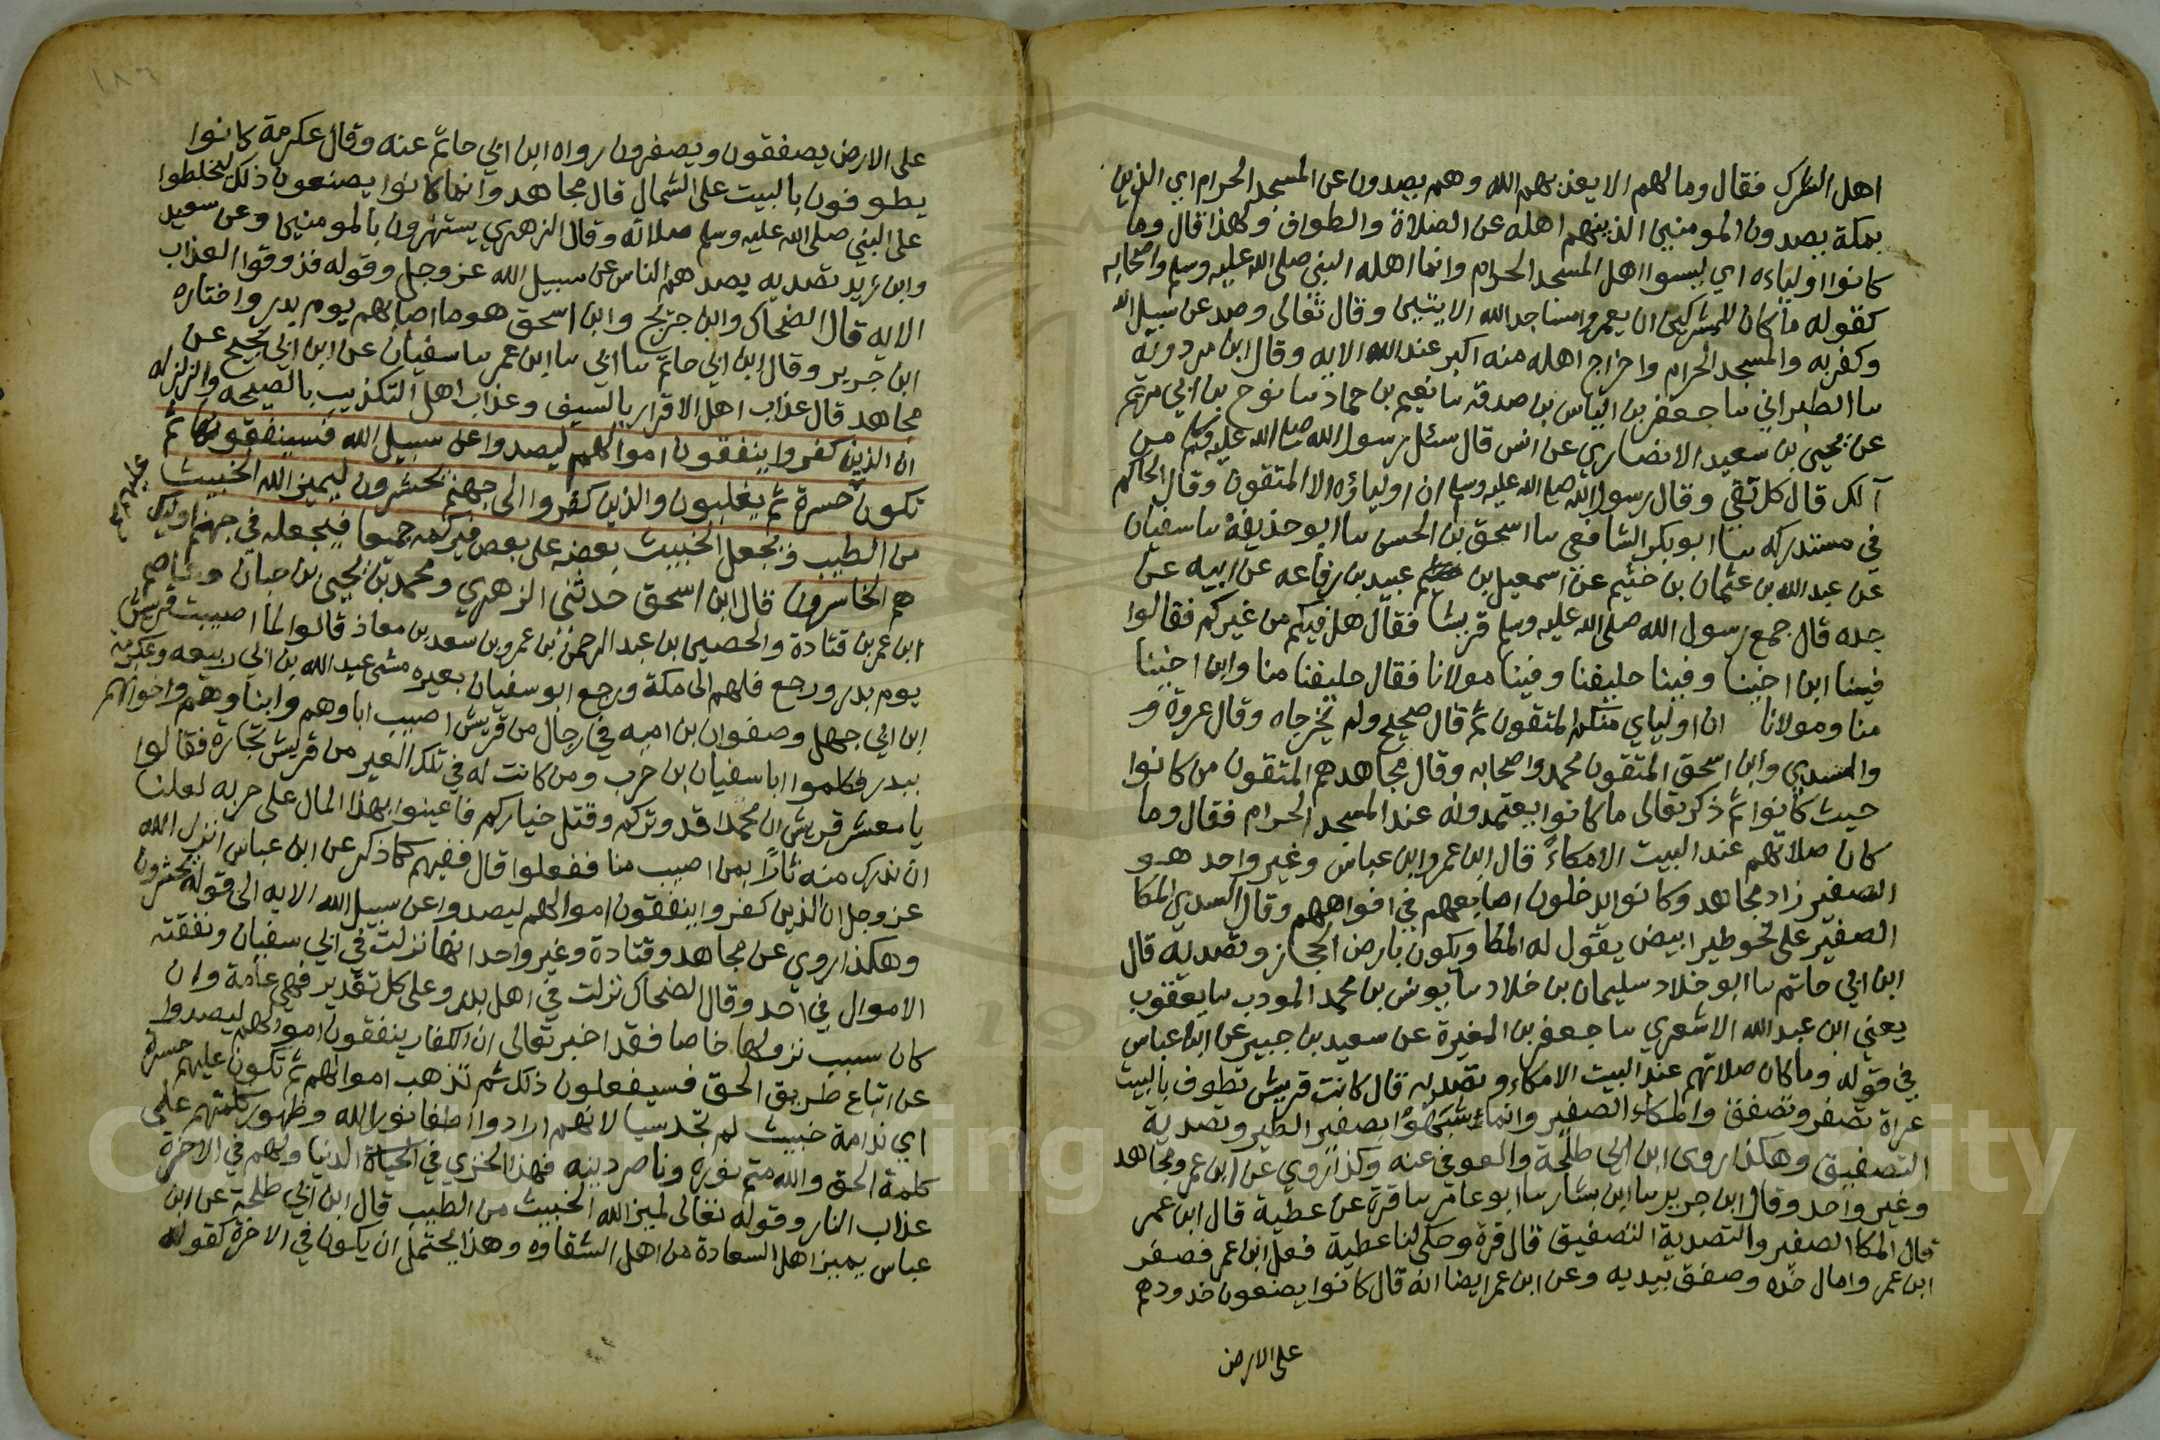 اهل الشرك فقال وما لهم الا يعذبهم الله وهم يصدون عن المسجد الحرام اي الذين
بمكة يصدون المومنين الذينهم اهله عن الصلاة والطواف وهذا قال وما
كانوا اولياءه اي ليسوا اهل المسجد الحرام وانما اهله النبي صلى الله عليه وسلم واصحابه
كقوله ما كان للمشركين ان يعمروا مساجد الله الايتين وقال تعالى وصد عن سبيل الله
وكفر به والمسجد الحرام واخراج اهله منه اكبر عند الله الايه وقال ابن مردويه
سا الطبراني سا جعفر بن الياس بن صدقه سا نعيم بن حماد سا نوح بن ابي مريم
عن يحيى بن سعيد الانصاري عن انس قال سئل رسول الله صلى الله عليه وسلم من
آلك قال كل تقي وقال رسول الله صلى الله عليه وسلم ان اولياؤه الا المتقون وقال الحاكم
في مستدركه سا ابو بكر الشافعي سا اسحق بن الحسن سا ابو حذيفة سا سفيان
عن عبد الله بن عثمان بن خثيم عن اسمعيل بن عبيد بن رفاعه عن ابيه عن
جده قال جمع رسول الله صلى الله عليه وسلم قريشا فقال هل فيكم من غيركم فقالوا
فينا ابن اختنا وفينا حليفنا وفينا مولانا فقال حليفنا منا وابن اختنا
منا ومولانا ان اوليائي منكم المتقون ثم قال صحيح ولم يخرجاه وقال عروة و
والسدي وابن اسحق المتقون محمد واصحابه وقال مجاهد هم المتقون من كانوا
حيث كانوا ثم ذكر تعالى ما كانوا يعتمدونه عند المسجد الحرام فقال وما
كان صلاتهم عند البيت الا مكاءً قال ابن عمر وابن عباس وغير واحد هو
الصفير زاد مجاهد وكانوا يدخلون اصابعهم في افواههم وقال السدي المكا
الصفير على نحو طير ابيض يقول له المكا ويكون بارض الحجاز وتصدية قال
ابن ابي حاتم سا ابو خلاد سليمان بن خلاد سا يونس بن محمد المودب سا يعقوب
يعني ابن عبد الله الاشعري سا جعفر بن المغيرة عن سعيد بن جبير عن ابن عباس
في قوله وما كان صلاتهم عند البيت الا مكاء وتصديه قال كانت قريش تطوف بالبيت
عراة تصفر وتصفق والمكاء الصفير وانما شبهوا بصفير الطير وتصدية
التصفيق وهكذا روى ابن ابي طلحة والعوفي عنه وكذا روي عن ابن عمر ومجاهد
وغير واحد وقال ابن جرير سا ابن بشار سا ابو عامر سا قرة عن عطية قال ابن عمر
قال المكا الصفير والتصدية التصفيق قال قرة وحكى لنا عطية فعل ابن عمر فصفر
ابن عمر وامال خده وصفق بيديه وعن ابن عمر ايضا انه قال كانوا يضعون خدودهم
على الارض
١٨٦
على الارض يصفقون ويصفرون رواه ابن ابي حاتم عنه وقال عكرمة كانوا
يطوفون بالبيت على الشمال قال مجاهد وانما كانوا يصنعون ذلك ليخلطوا
على النبي صلى الله عليه وسلم صلاته وقال الزهري يستهزون بالمومنين وعن سعيد
وابن زيد تصديه يصدهم الناس عن سبيل الله عز وجل وقوله فذوقوا العذاب
الايه قال الضحاك وابن جريج وابن اسحق هو ما اصابهم يوم بدر واختاره
ابن جرير وقال ابن ابي حاتم سا ابي سا ابن عمر سا سفيان عن ابن ابي نجيح عن
مجاهد قال عذاب اهل الاقرار بالسيف وعذاب اهل التكذيب بالصيحه والزلزله
ان الذين كفروا ينفقون اموالهم ليصدوا عن سبيل الله فسينفقونها ثم
تكون حسرة ثم يغلبون والذين كفروا الى جهنم يحشرون ليميز الله الخبيث
عليهم
من الطيب ويجعل الخبيث بعضه على بعض فيركمه جميعا فيجعله في جهنم اوليك
هم الخاسرون قال ابن اسحق حدثني الزهري ومحمد بن يحيى بن حبان وعاصم
ابن عمر بن قتادة والحصين ابن عبد الرحمن بن عمرو بن سعد بن معاذ قالوا لما اصيبت قريش
يوم بدر ورجع فلهم الى مكة ورجع ابو سفيان بعيره مشى عبد الله بن ابي ربيعه وعكرمة
ابن ابي جهل وصفوان بن اميه في رجال من قريش اصيب اباوهم وابناوهم واخوانهم
ببدر فكلموا ابا سفيان بن حرب ومن كانت له في تلك العير من قريش تجارة فقالوا
يا معشر قريش ان محمدا قد وتركم وقتل خياركم فاعينوا بهذا المال على حربه لعلنا
ان ندرك منه ثارًا بمن اصيب منا ففعلوا قال ففيهم كما ذكر عن ابن عباس انزل الله
عز وجل ان الذين كفروا ينفقون اموالهم ليصدوا عن سبيل الله الايه الى قوله يحشرون
وهكذا روي عن مجاهد وقتادة وغير واحد انها نزلت في ابي سفيان ونفقته
الاموال في احد وقال الضحاك نزلت في اهل بدر وعلى كل تقدير فهي عامة وان
كان سبب نزولها خاصا فقد اخبر تعالى ان الكفار ينفقون اموالهم ليصدوا
عن اتباع طريق الحق فسيفعلون ذلك ثم تذهب اموالهم ثم تكون عليهم حسرة
اي ندامة خبيث لم تجد سيا لانهم ارادوا اطفا نور الله وظهور كلمتهم على
كلمة الحق والله متم نوره وناصر دينه فهذا الخزي في الحياة الدنيا ولهم في الاخرة
عذاب النار وقوله تعالى ليميز الله الخبيث من الطيب قال ابن ابي طلحة عن ابن
عباس يميز اهل السعادة من اهل الشقاوه وهذا يحتمل ان يكون في الاخرة كقوله